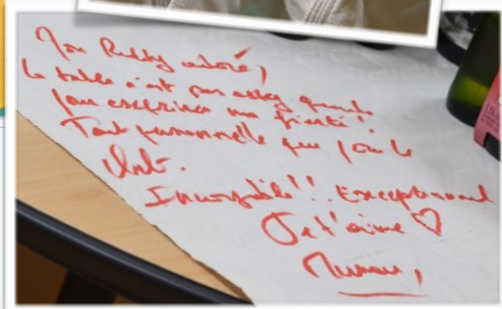 Mon Rubby adoré,
la table n'est pas assez grande
pour exprimer ma fierté !
Tant personnelle que pour le
club.
Incroyable !! Exceptionnel
Je t'aime ♡
Maman,